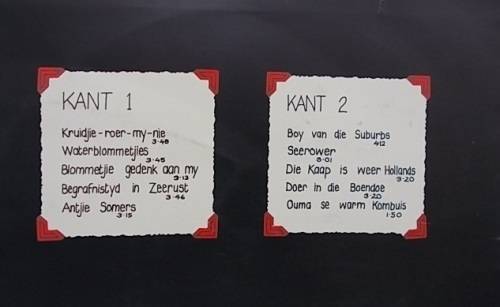 KANT 1
Kruidjie-roer-my-nie
3·48
Waterblommetjies
3·45
Blommetjie gedenk aan my
3·13
Begrafnistyd in Zeerust
3·46
Antjie Somers
3·15
KANT 2
Boy van die Suburbs
4·12
Seerower
3·01
Die Kaap is weer Hollands
3·20
Doer in die Boendoe
3·20
Ouma se warm Kombuis
1·50